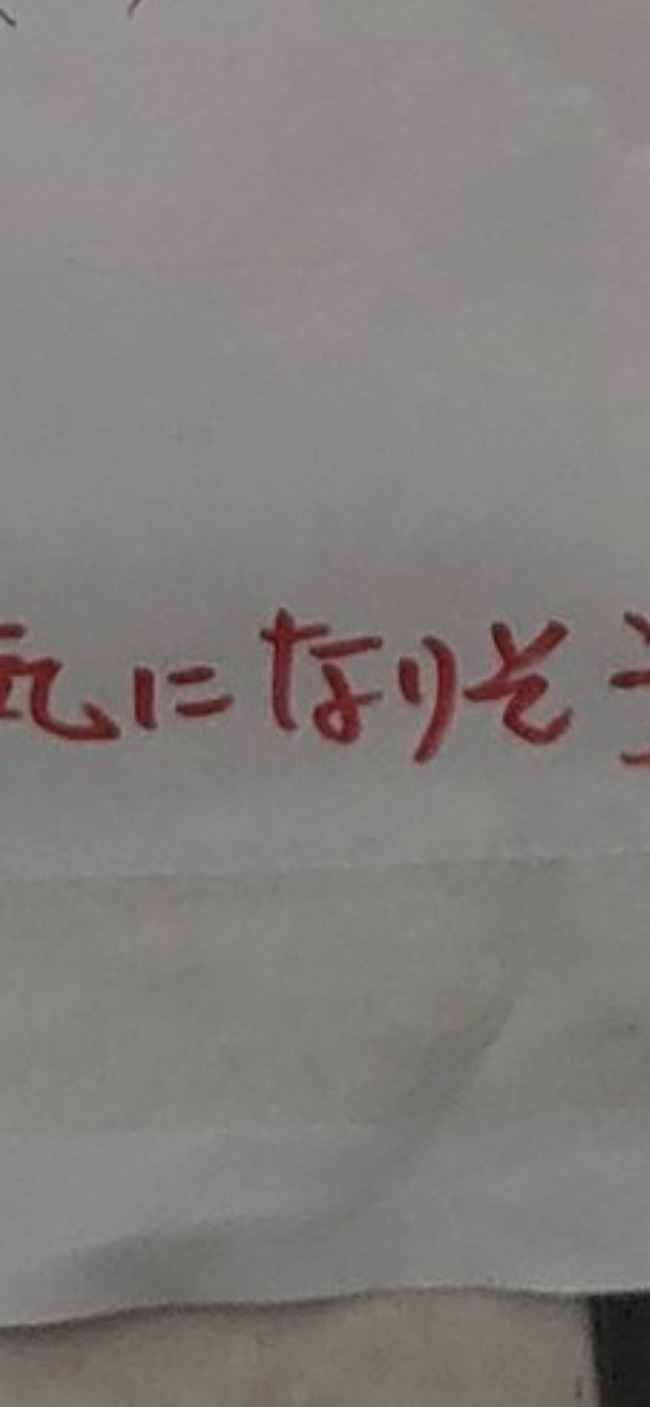 になりそ